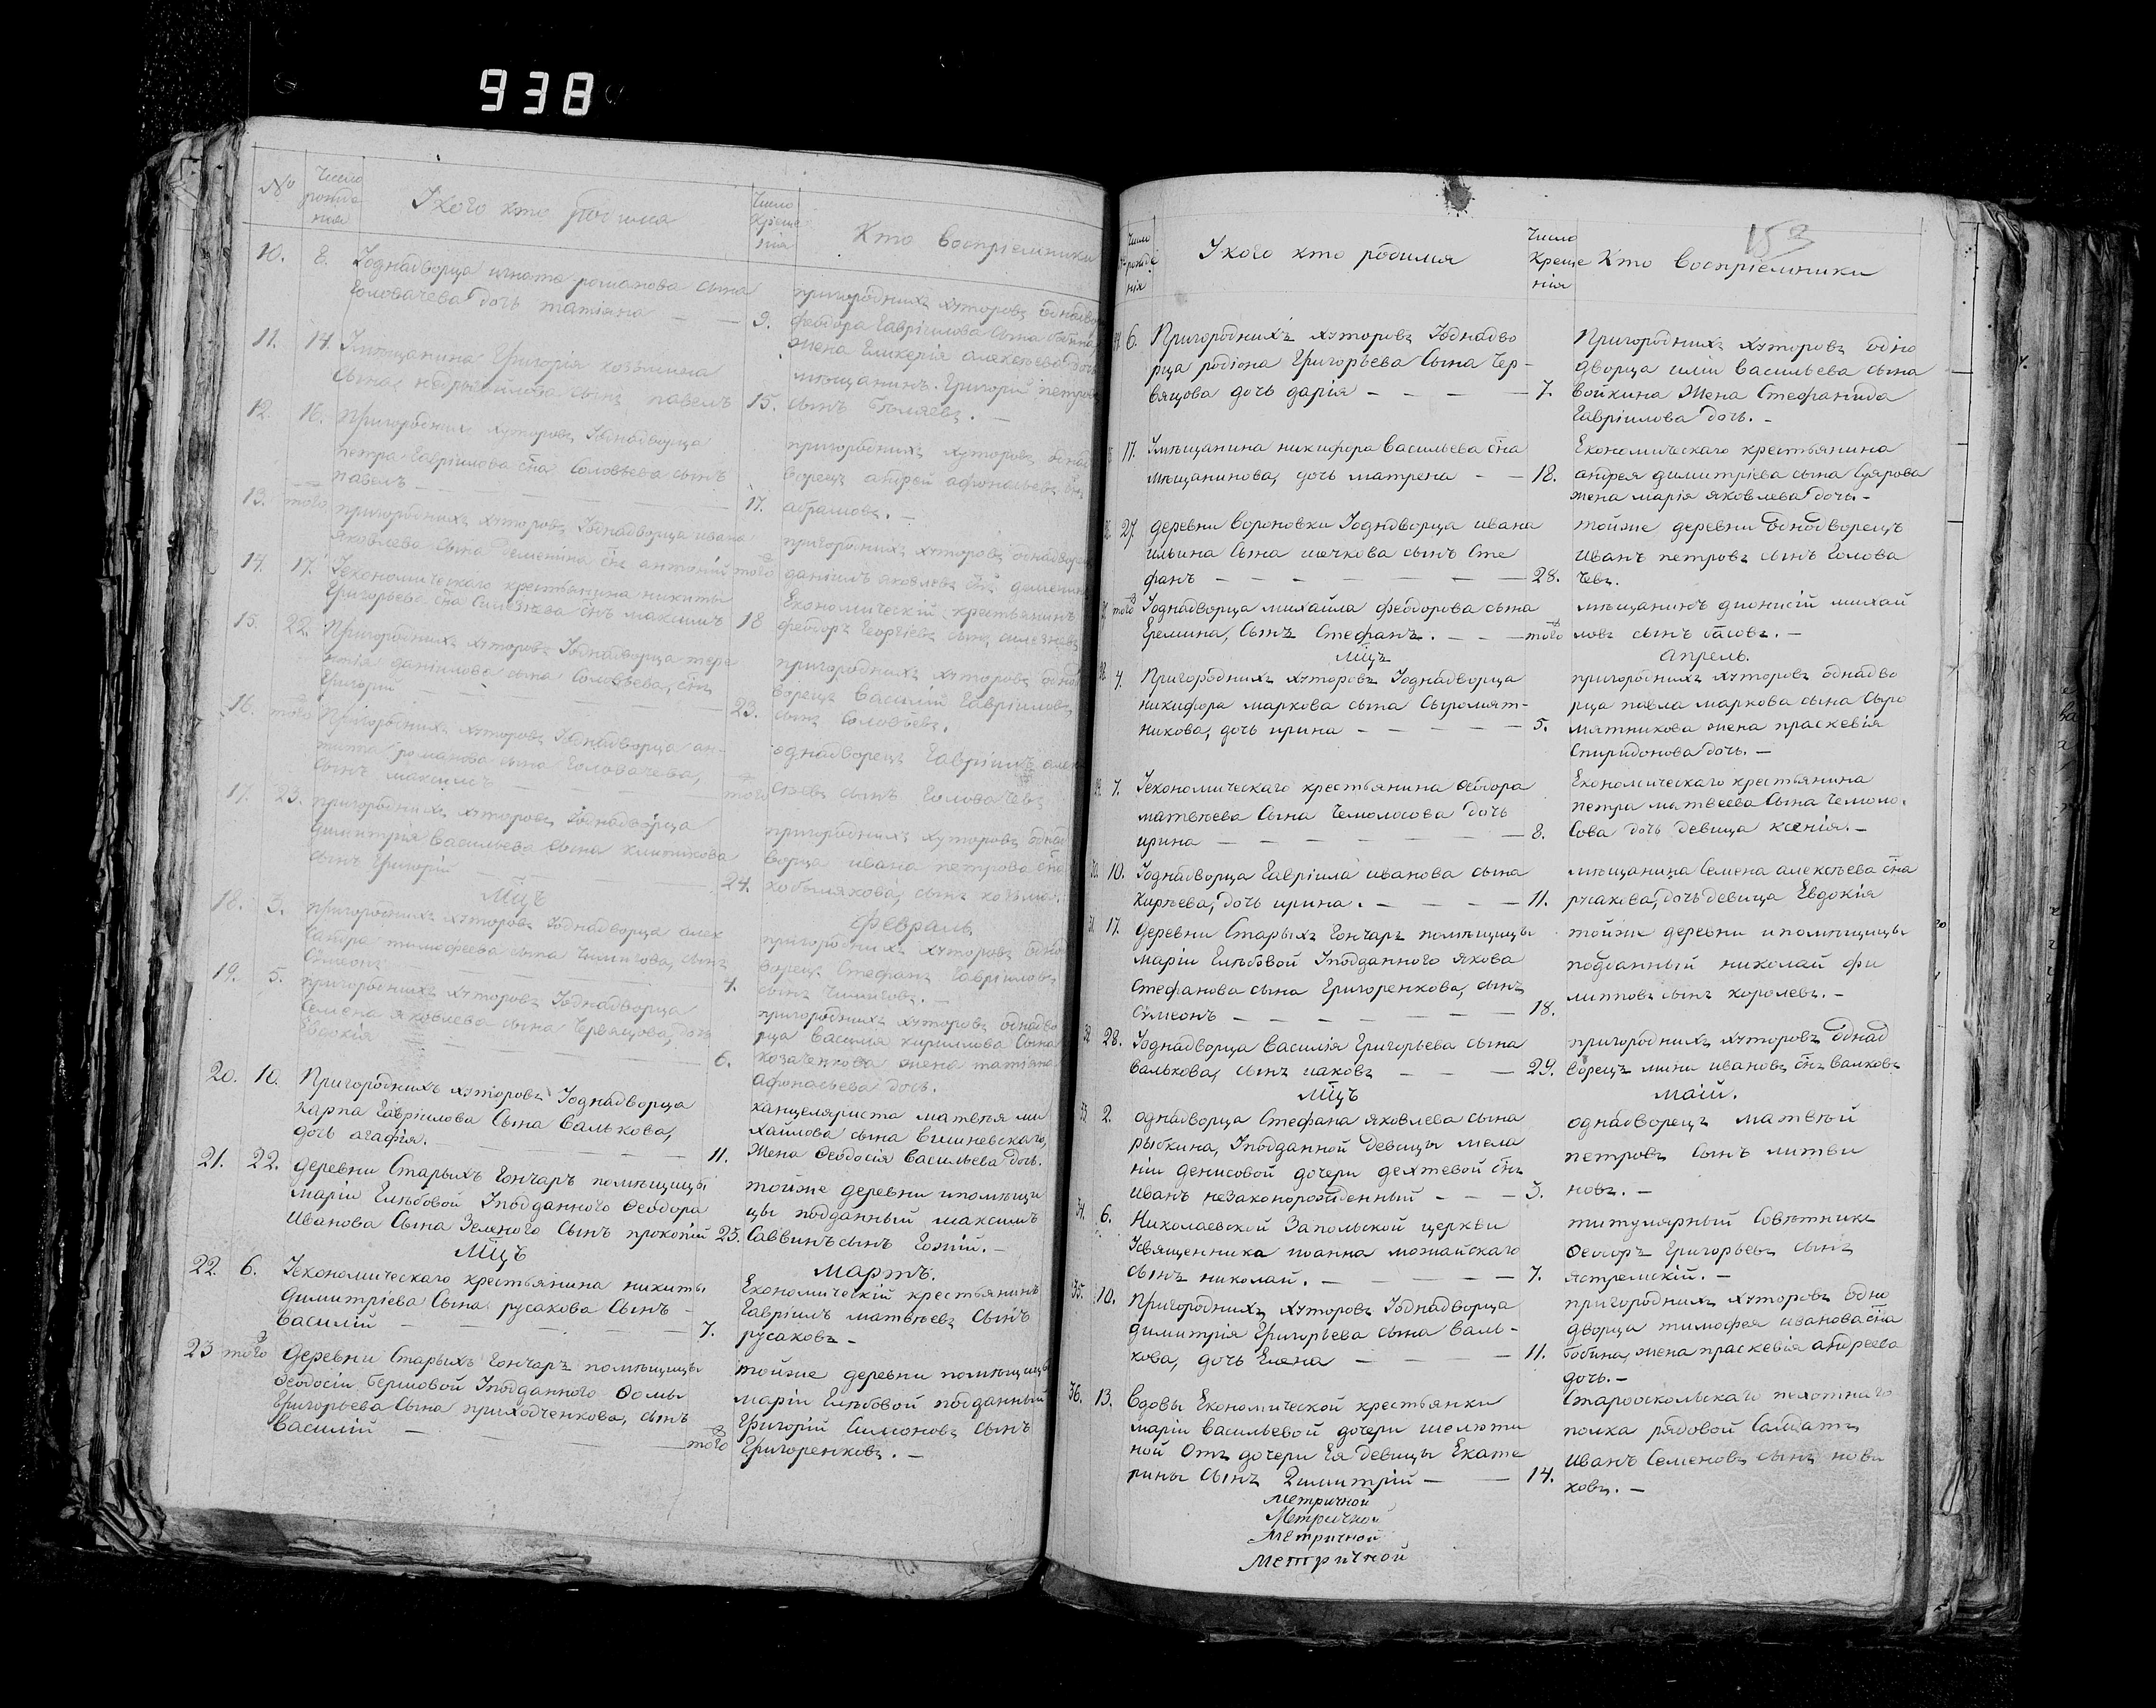 938
№
Число
рожде
нія
У кого кто родился
Число
Креще
нія
Кто восприемники
10. 8. У однадворца игната романова сына
Головачева дочь татіяна — — 9.
пригородних хуторовъ однадво
феодора Гавріилова сына
жена Гликерія алексѣева дочь
11. 14. У мѣщанина Григорія козьмина
сына сынъ павелъ 15.
мѣщанинъ Григорій петровъ
сынъ бѣляевъ. —
12. 16. пригородних хуторовъ У однадворца
петра Гавріилова сна Соловьева сынъ
павелъ — 17.
пригородних хуторовъ однад
ворецъ андрей афонасьевъ снъ
абрамовъ. —
13. того пригородних хуторовъ У однадворца ивана
яковлева сына деменина снъ антоній того
пригородних хуторовъ однадворец
даніилъ яковлевъ снъ деменин
14. 17. У економическаго крестьянина никиты
Григорьева сна снъ максимъ 18
Економическій крестьянинъ
феодоръ Георгіевъ сынъ
15. 22. Пригородних хуторовъ У однадворца тере
нтія даніилова сына Соловьева, снъ
Григорій — 23.
пригородних хуторовъ однод
ворецъ Василій Гавріиловъ
сынъ Соловьевъ.
16. того Пригородних хуторовъ У однадворца ан-
типа романова сына Головачева,
сынъ максимъ — того
однадворецъ Гавріилъ алек
сѣевъ сынъ Головачевъ
17. 23. пригородних хуторовъ У однадворца
димитрія Васильева сына
сынъ Григорій 24.
пригородних хуторовъ однад
ворца ивана петрова сна
кобылякова, сынъ козьма.
Мцъ февраль
18. 3. пригородних хуторовъ У однадворца алек
сандра тимофеева сына Чилигова, сынъ
Сумеонъ — 4.
пригородних хуторовъ однод
ворецъ Стефанъ Гавріиловъ
сынъ Чилиговъ. —
19. 5. пригородних хуторовъ У однадворца
Семена яковлева сына Червяцова, дочь
Евдокія — 6.
пригородних хуторовъ однадво
рца василія кириллова сына
козаченкова жена татіяна
афонасьева дочь.
20. 10. Пригородних хуторовъ У однадворца
карпа Гавріилова Сына Валькова,
дочь агафія. — 11.
канцеляриста матвѣя ми
хайлова сына Вишневскаго,
жена Ѳеодосія Васильева дочь.
21. 22. деревни Старыхъ Гончаръ помѣщицы
маріи Глѣбовой У подданного Ѳеодора
Иванова Сына Зеленого Сынъ прокопій 23.
тойже деревни и помѣщи
цы подданный максимъ
Саввинъ сынъ Гожій. —
Мцъ Мартъ.
22. 6. У економическаго крестьянина никиты
Димитріева Сына русакова Сынъ —
Василій — 7.
Економическій крестьянинъ
Гавріилъ матвѣевъ Сынъ
русаковъ —
23 того Деревни Старыхъ Гончаръ помѣщицы
Ѳеодосіи Бершовой У подданного Ѳомы
Григорьева Сына приходченкова, сынъ
Василій — того
тойже деревни помѣщицы
маріи Глѣбовой подданный
Григорій Симоновъ Сынъ
Григоренковъ. —
153
Число
рожде
нія
У кого кто родился
Число
Креще
нія
Кто восприемники
6. Пригородних хуторовъ У однадво
рца родіона Григорьева Сына Чер-
вяцова дочь дарія — — — 7.
Пригородних хуторовъ одно
дворца иліи Васильева сына
войкина Жена Стефанида
Гавріилова дочь. —
17. У мѣщанина никифора Васильева сна
мѣщанинова, дочь матрена — — 18.
Економическаго крестьянина
андрея димитріева сына
жена марія яковлева дочь. —
27 деревни вороновки У однадворца ивана
ильина Сына шечкова сынъ Сте
фанъ — — — 28.
тойже деревни однадворецъ
Иванъ петровъ сынъ Голова
чевъ.
того У однадворца михайла феодорова сына
Еремина, Сынъ Стефанъ. — — того
мѣщанинъ дионисій михай
ловъ сынъ басовъ. —
Мцъ Апрель.
4. Пригородних хуторовъ У однадворца
никифора маркова сына Сыромят-
никова, дочь ирина — — — 5.
пригородних хуторовъ однадво
рца павла маркова сына Сыро
мятникова жена праскевія
Спиридонова дочь. —
7. У економическаго крестьянина Ѳеодора
матвѣева Сына Чемолосова дочь
ирина — — — 8.
Економическаго крестьянина
петра матвеева Сына Чемоло.
Сова дочь девица ксенія. —
10. У однадворца Гавріила иванова сына
Кирѣева, дочь ирина. — — — 11.
мѣщанина Семена алексѣева сна
русакова, дочь девица Евдокія
31 17. Деревни Старыхъ Гончаръ помѣщицы
маріи Глѣбовой У подданного якова
Стефанова сына Григоренкова, сынъ
Сумеонъ — — — 18.
тойже деревни и помѣщицы
подданный николай фи
липповъ сынъ королевъ. —
32 28. У однадворца Василія Григорьева сына
валькова, сынъ иаковъ — — 29.
пригородних хуторовъ однад
ворецъ мини ивановъ снъ валковъ
Мцъ Маій.
33. 2. однадворца Стефана яковлева сына
рыбкина, У подданной девицы мела
ніи денисовой дочери дехтевой снъ
иванъ незаконорожденный — — — 3.
однадворецъ матвѣй
петровъ Сынъ литви
новъ. —
34. 6. Николаевской Запольской церкви
У священника иоанна можайскаго
сынъ николай. — — — 7.
титулярный Совѣтникъ
Ѳеодоръ Григорьевъ сынъ
ястремскій. —
35. 10. Пригородних хуторовъ У однадворца
димитрія Григорьева сына Валь-
кова, дочь Елена — — 11.
пригородних хуторовъ одно
дворца тимофея иванова сна
бобина, жена праскевія андреева
дочь. —
36. 13. Вдовы Економической крестьянки
маріи васильевой дочери шелюти
ной Отъ дочери Ея девицы Екате
рины сынъ Димитрій — — 14.
Староскольскаго пехотнаго
полка рядовой Салдатъ
иванъ Семеновъ сынъ нови
ковъ. —
метричной
Метричной
Метричной
Метричной